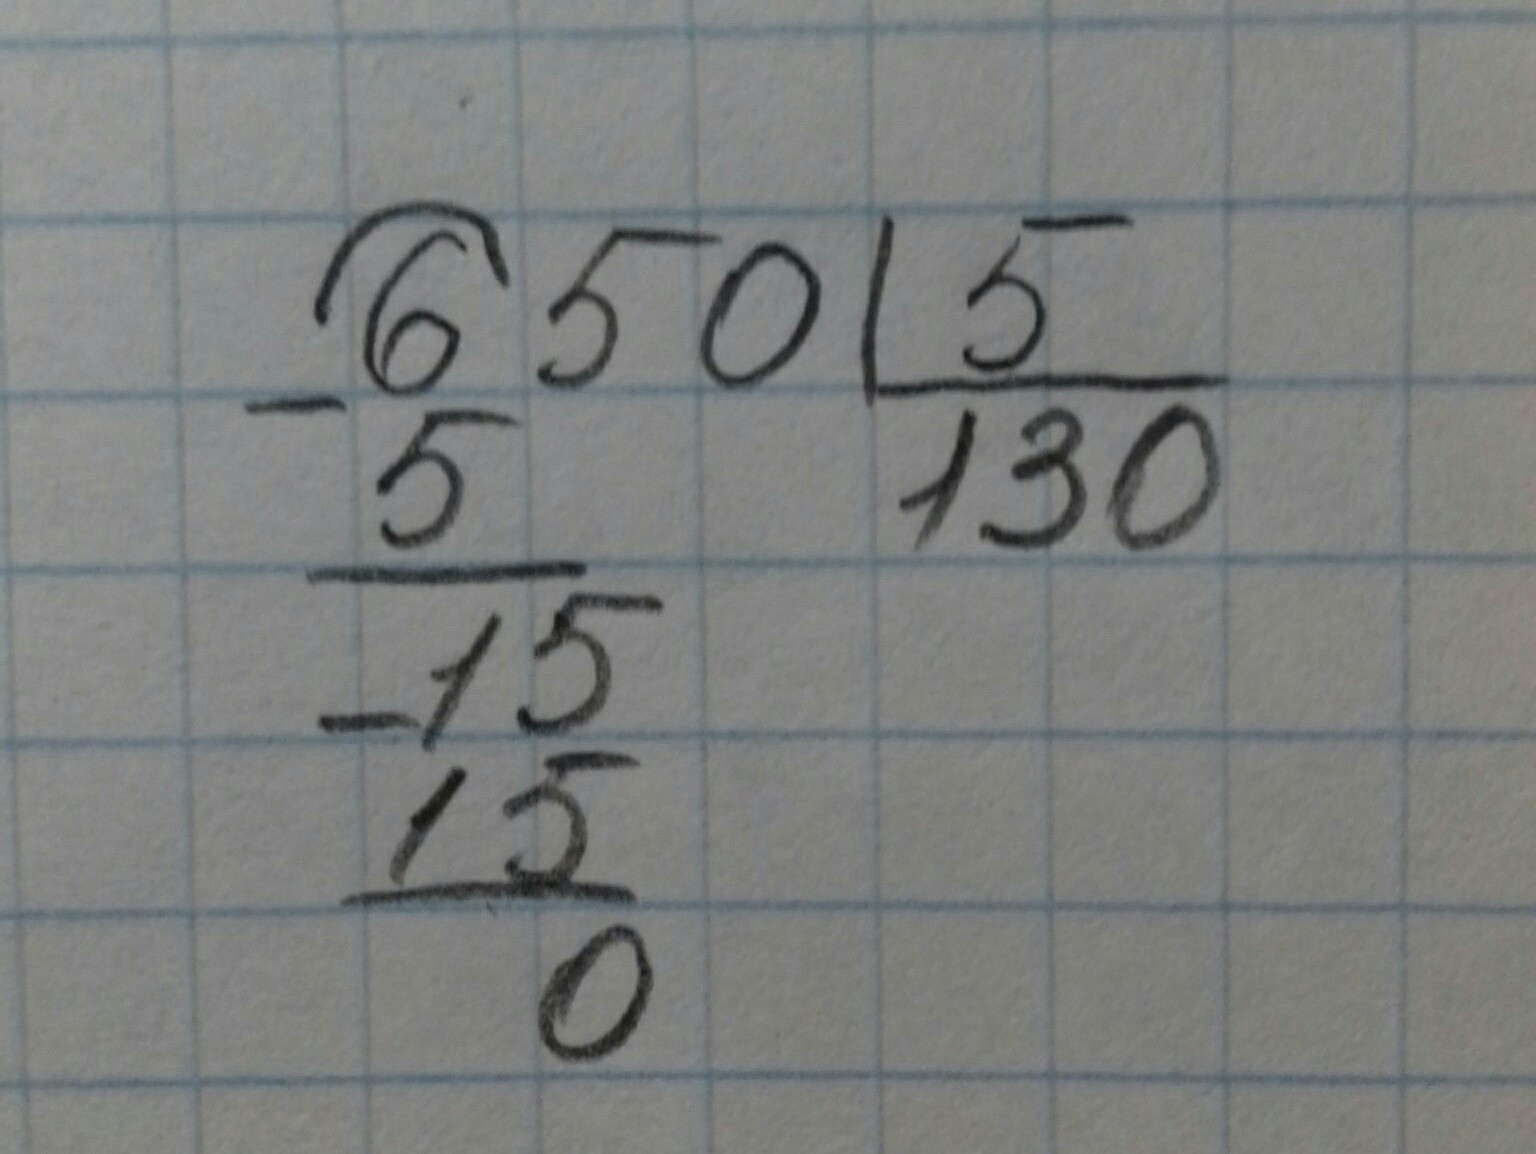 650 5
- 5 130
15
- 15
0